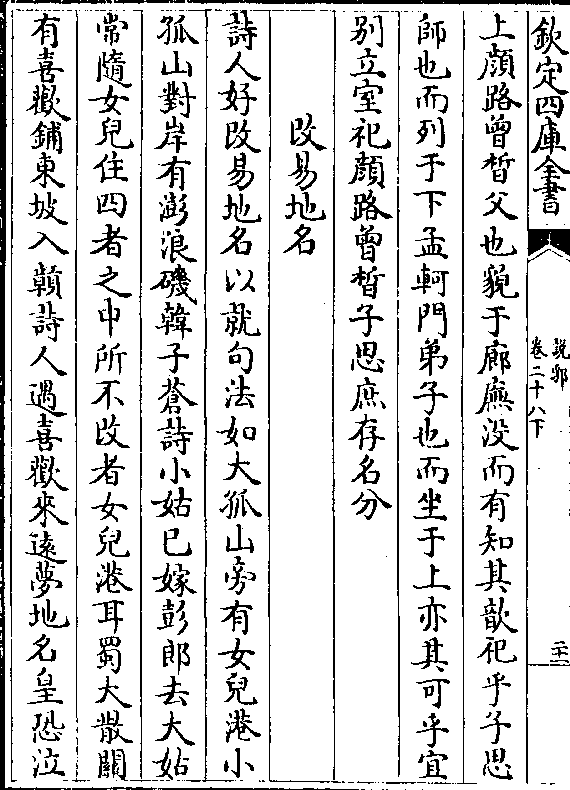 欽定四庫全書
說郛
卷二十八下
二十一
上顔路曾晳父也貌于廊廡没而有知其歆祀乎子思
師也而列于下孟軻門弟子也而坐于上亦其可乎宜
别立室祀顔路曾晳子思庶存名分
改易地名
詩人好改易地名以就句法如大孤山旁有女兒港小
孤山對岸有澎浪磯韓子蒼詩小姑已嫁彭郎去大姑
常隨女兒住四者之中所不改者女兒港耳蜀大散關
有喜歡鋪東坡入贑詩人遇喜歡來遠夢地名皇恐泣